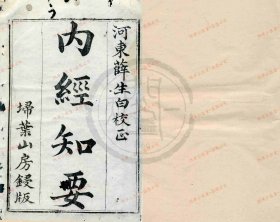 河東薛生白校正
內經知要
掃葉山房鋟版